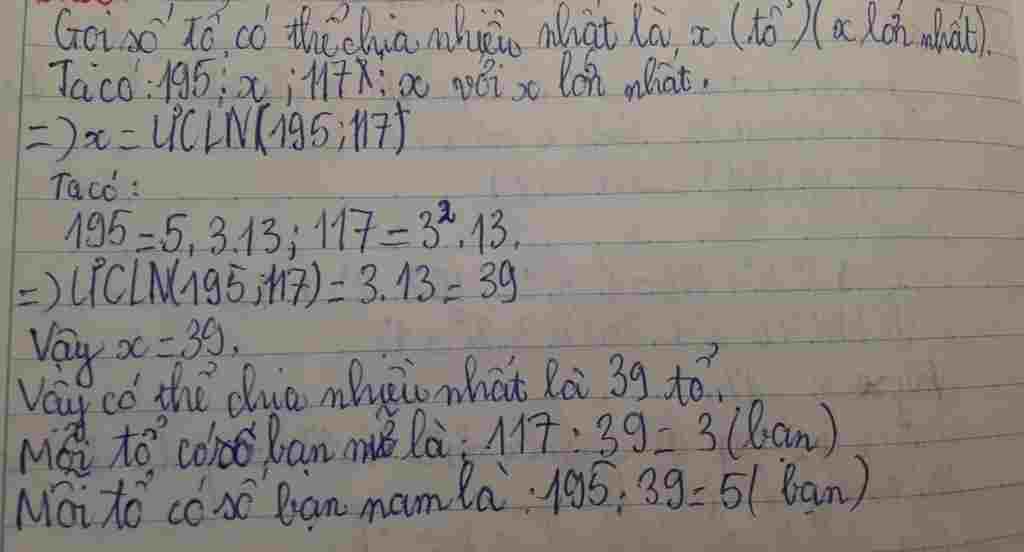 Gọi số tổ có thể chia nhiều nhất là x (tổ) (x lớn nhất).
Ta có: 195 ⋮ x ; 117 ⋮ x với x lớn nhất.
=> x = ƯCLN(195; 117)
Ta có:
195 = 5.3.13; 117 = 3².13.
=> ƯCLN(195; 117) = 3.13 = 39
Vậy x = 39.
Vậy có thể chia nhiều nhất là 39 tổ.
Mỗi tổ có số bạn nữ là: 117 : 39 = 3 (bạn)
Mỗi tổ có số bạn nam là: 195 : 39 = 5 (bạn)